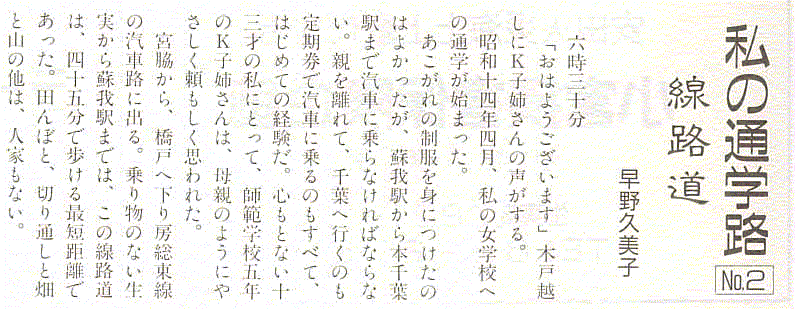 私の通学路
No.2
線路道
早野久美子
六時三十分
「おはようございます」木戸越
しにK子姉さんの声がする。
昭和十四年四月、私の女学校へ
の通学が始まった。
あこがれの制服を身につけたの
はよかったが、蘇我駅から本千葉
駅まで汽車に乗らなければならな
い。親を離れて、千葉へ行くのも
定期券で汽車に乗るのもすべて、
はじめての経験だ。心もとない十
三才の私にとって、師範学校五年
のK子姉さんは、母親のようにや
さしく頼もしく思われた。
宮脇から、橋戸へ下り房総東線
の汽車路に出る。乗り物のない生
実から蘇我駅までは、この線路道
は、四十五分で歩ける最短距離で
あった。田んぼと、切り通しと畑
と山の他は、人家もない。